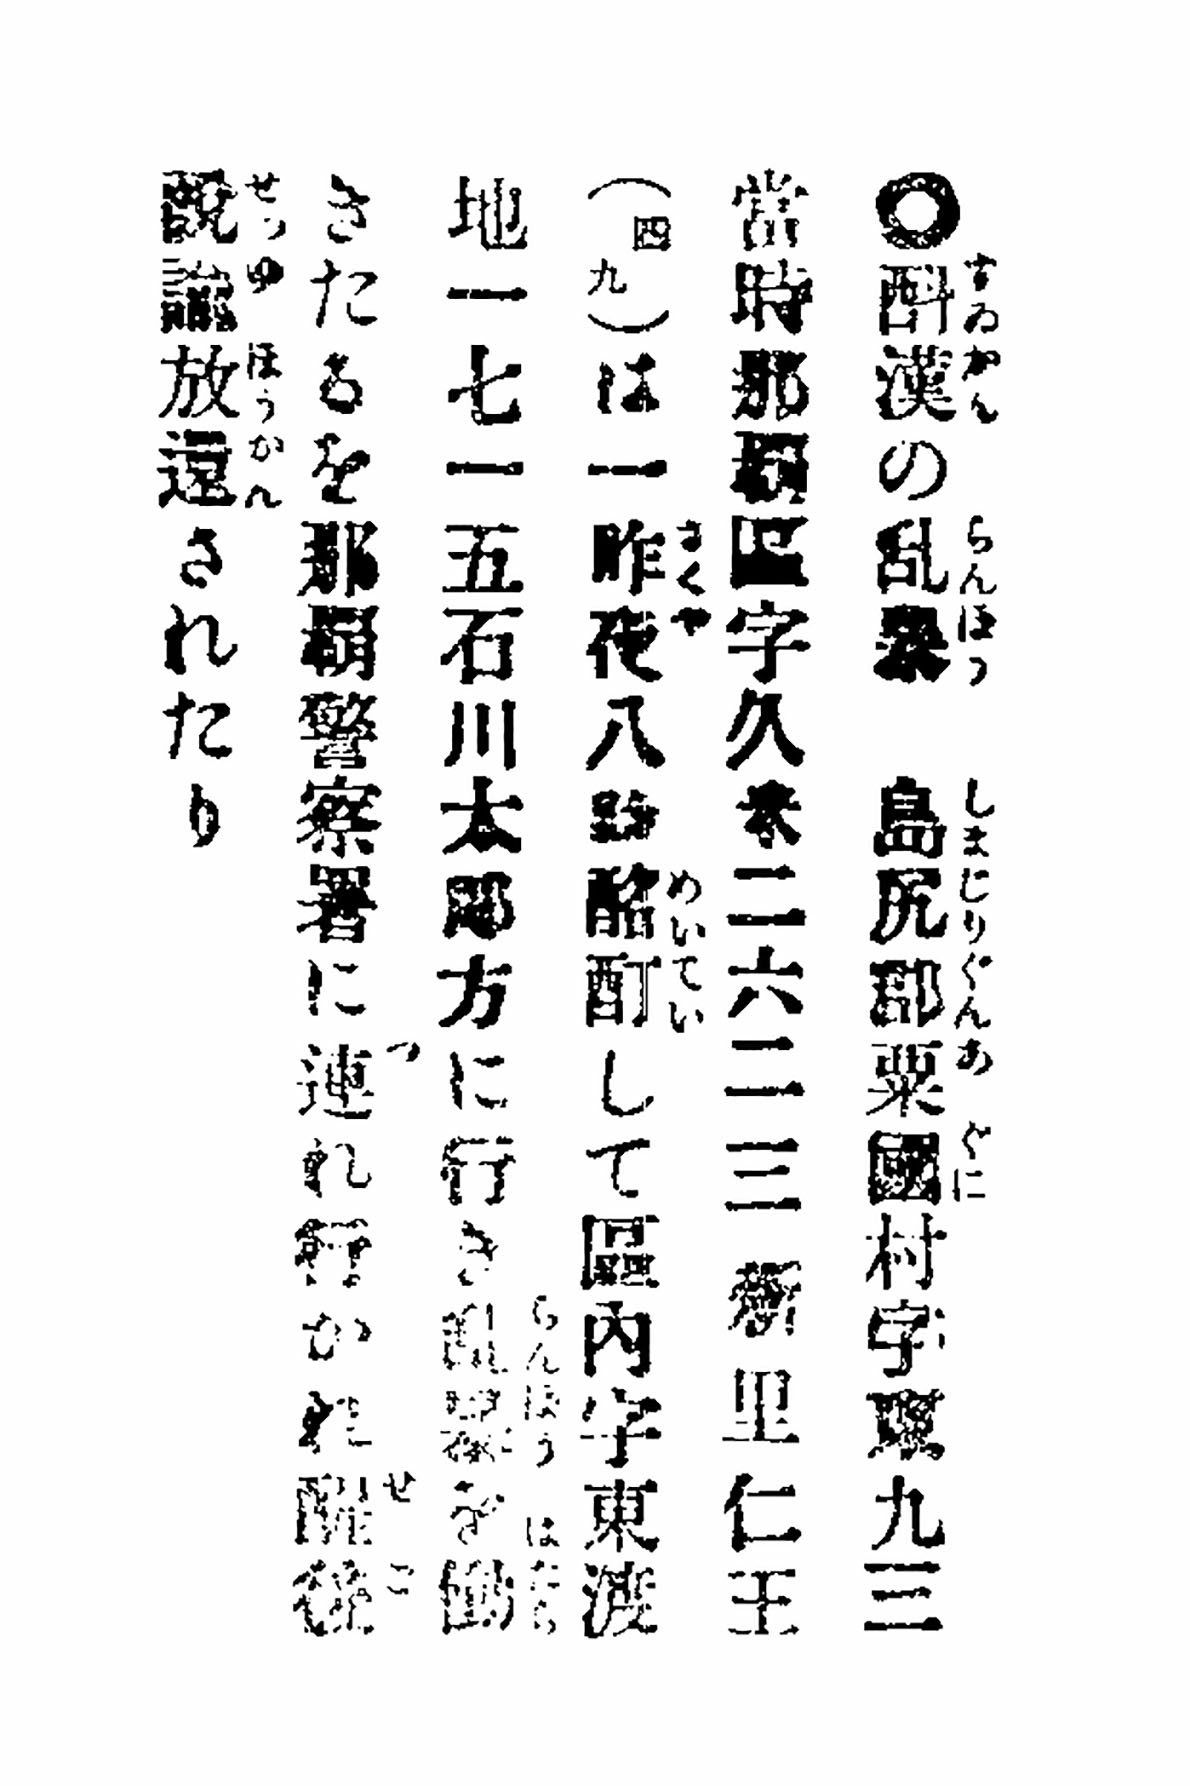 ◎酔漢の乱暴　島尻郡粟國村字東九三
當時那覇區字久米二六二三新里仁王
（四九）は一昨夜八時酩酊して區内字東渡
地一七一五石川太郎方に行き乱暴を働
きたるを那覇警察署に連れ行かれ醒後
説諭放還されたり